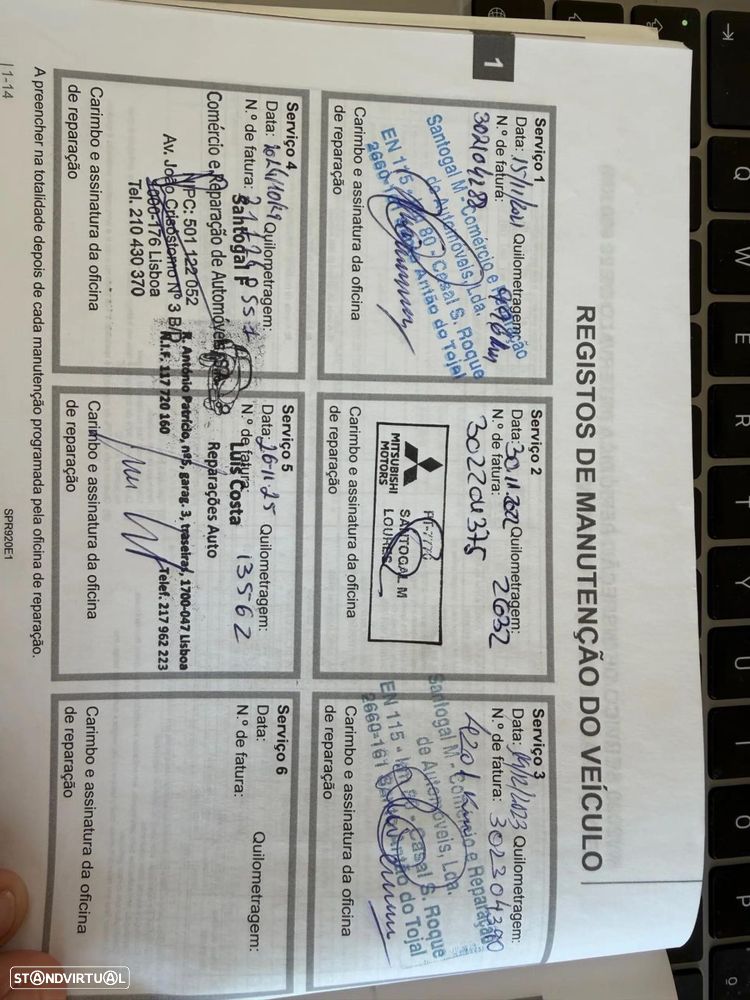 REGISTOS DE MANUTENÇÃO DO VEÍCULO
1
Serviço 1
Data: 15/11/2021 Quilometragem:
N.º de fatura:
302104282
Santogal M - Comércio e Reparação
de Automóveis, Lda.
EN 115 - 80 - Casal S. Roque
2660- Antão do Tojal
Carimbo e assinatura da oficina
de reparação
Serviço 2
Data: 30.11.2022 Quilometragem:
N.º de fatura: 26352
302204375
MITSUBISHI
MOTORS
SANTOGAL M
LOURES
Carimbo e assinatura da oficina
de reparação
Serviço 3
Data: 14/12/2023 Quilometragem:
N.º de fatura: 302304390
Santogal M - Comércio e Reparação
de Automóveis, Lda.
EN 115 - Km - Casal S. Roque
2660-161 Antão do Tojal
Carimbo e assinatura da oficina
de reparação
Serviço 4
Data: Quilometragem:
N.º de fatura:
Santogal P
Comércio e Reparação de Automóveis, SA
NIPC: 501 122 052
Av. João Crisóstomo Nº 3 B/D
1000-176 Lisboa
Tel. 210 430 370
Carimbo e assinatura da oficina
de reparação
Serviço 5
Data: 26-11-25 Quilometragem:
N.º de fatura: 13562
Luis Costa
Reparações Auto
R. António Patrício, nº5, garag. 3, traseiras, 1700-047 Lisboa
N.I.F. 117 720 160 Telef. 217 962 223
Carimbo e assinatura da oficina
de reparação
Serviço 6
Data: Quilometragem:
N.º de fatura:
Carimbo e assinatura da oficina
de reparação
A preencher na totalidade depois de cada manutenção programada pela oficina de reparação.
SPR920E1
1-14
Q
W
E
R
T
Y
U
I
O
P
STANDVIRTUAL